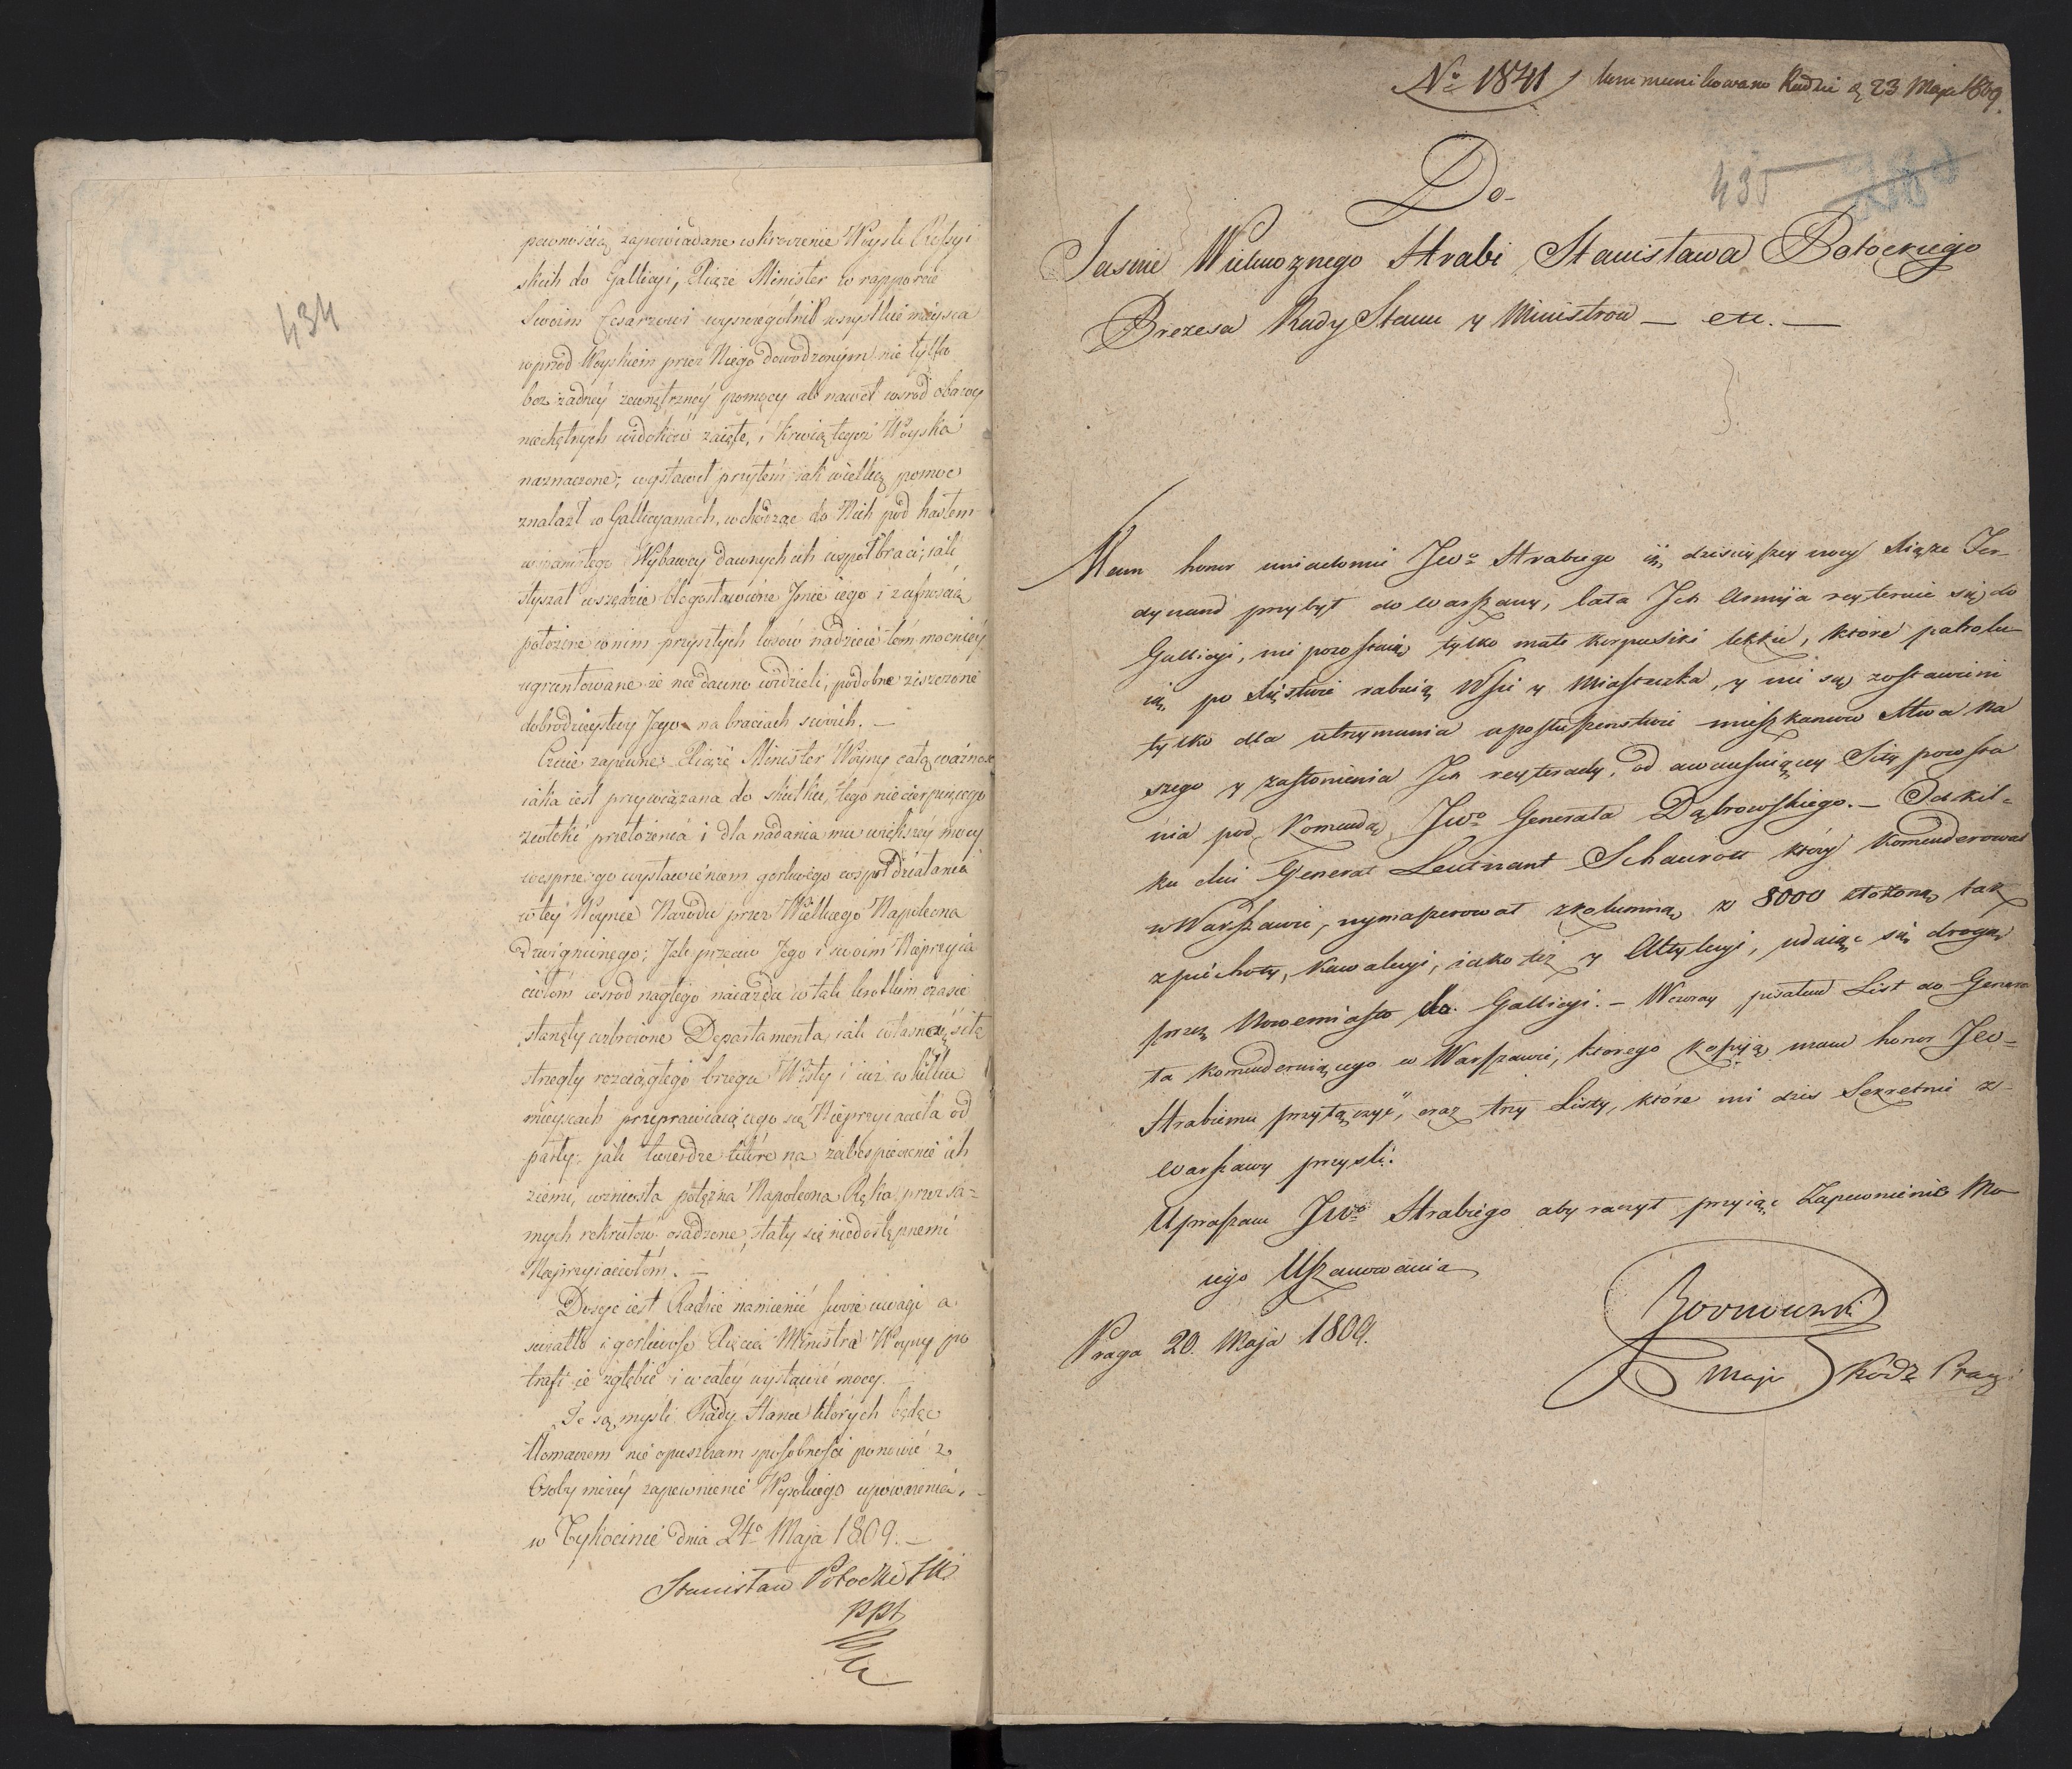 434
pewnością zapowiadane wkroczenie Woysk Rossyi
skich do Gallicyi, Xiąże Minister w rapporcie
Swoim Cesarzowi wyszczególnił wszystkie mieysca
wprzód Woyskiem przez Niego dowodzonym nie tylko
bez żadney zewnętrzney pomocy ale nawet wsród obawy
niechętnych widoków zaięte, i krwią tegoż Woyska
naznaczone; wystawił przytem iak wielką pomoc
znalazł w Gallicyanach, wchodząc do Nich pod hasłem
Wybawcy dawnych ich współbraci; iak
słyszał wszędzie błogosławione Jmie iego i z ufnością
położone w nim przyszłych losów nadzieie tem mocniey
ugruntowane że nie dawno widzieli, podobne ziszczone
dobrodzieystwy Jego na braciach swoich. —
Czuie zapewne Xiąże Minister Woyny całą ważność
iaka iest przywiązana do skutku, tego niecierpiącego
zwłoki przełożenia i dla nadania mu większey mocy
wesprze go wystawieniem gorliwego współdziałania
w tey Woynie Narodu przez Wielkiego Napoleona
Dzwignionego; Jak przeciw Jego i swoim Nieprzyia
ciołom wsrod nagłego naiazdu w tak krotkim czasie
stanęły uzbroione Departamenta, iak własną siłą
strzegły rozciągłego brzegu Wisły i iuż w kilku
mieyscach przeprawiaiącego się Nieprzyiaciela od
parły; jak twierdze które na zabespieczenie ich
ziemi, wzniosła potężna Napoleona Ręka, przez sa-
mych rekrutów osadzone, stały się niedostępnemi
Nieprzyiaciołom. —
Dosyć iest Radzie namienić swoie uwagi a
swiatło i gorliwość Xięcia Ministra Woyny po
trafi ie zgłębić i w całey wystawić mocy. —
Te są mysli Rady Stanu których będąc
tłomaczem nie opuszczam sposobności ponowić z
Osoby moiey zapewnienie Wysokiego upoważenia. —
w Tykocinie dnia 24º Maja 1809. —
Stanisław Potocki
ppt
Nº 1841 kommunikowano Radzie d. 23 Maja 1809
435
Do
Jasnie Wielmożnego Hrabi Stanisława Potockiego
Prezesa Rady Stanu y Ministrow — etc. —
Mam honor uniadomic JWo Hrabiego iż dzisieyszey nocy Xiąże Fer-
dynand przybył do Warszawy, cała Jch Armija reyteruie się do
Gallicyi, nie pozostaią tylko małe korpusiki lekkie, które patrolu-
ią po Xięstwie rabuią Wsie y Miasteczka, y nie są zostawieni
tylko dla utrzymania w posłuszenstwie mieszkancow Xtwa na
szego y zasłonienia Jch reyterady, od awansuiącey Siły powsta
nia pod Komendą JWo Generała Dąbrowskiego. — Od kil-
ku dni Generał Leutnant Schauroth który Komenderował
w Warszawie, wymaszerował z kolumną z 8000 złożoną tak
z piechoty, Kawaleryi, iako też y Artyleryi, udaiąc się drogą
przez Nowemiasto do Gallicyi. — Wczoray pisałem List do Genera
ła komenderuiącego w Warszawie, którego kopiją mam honor JWo
Hrabiemu przyłączyć, oraz trzy Listy, które mi dzis Sekretnie z
Warszawy przysłi.
Upraszam JWo Hrabiego aby raczył przyiąć Zapewnienie Mo
iego Uszanowania
Praga 20. Maja 1809.
Maje Kodz Pragi